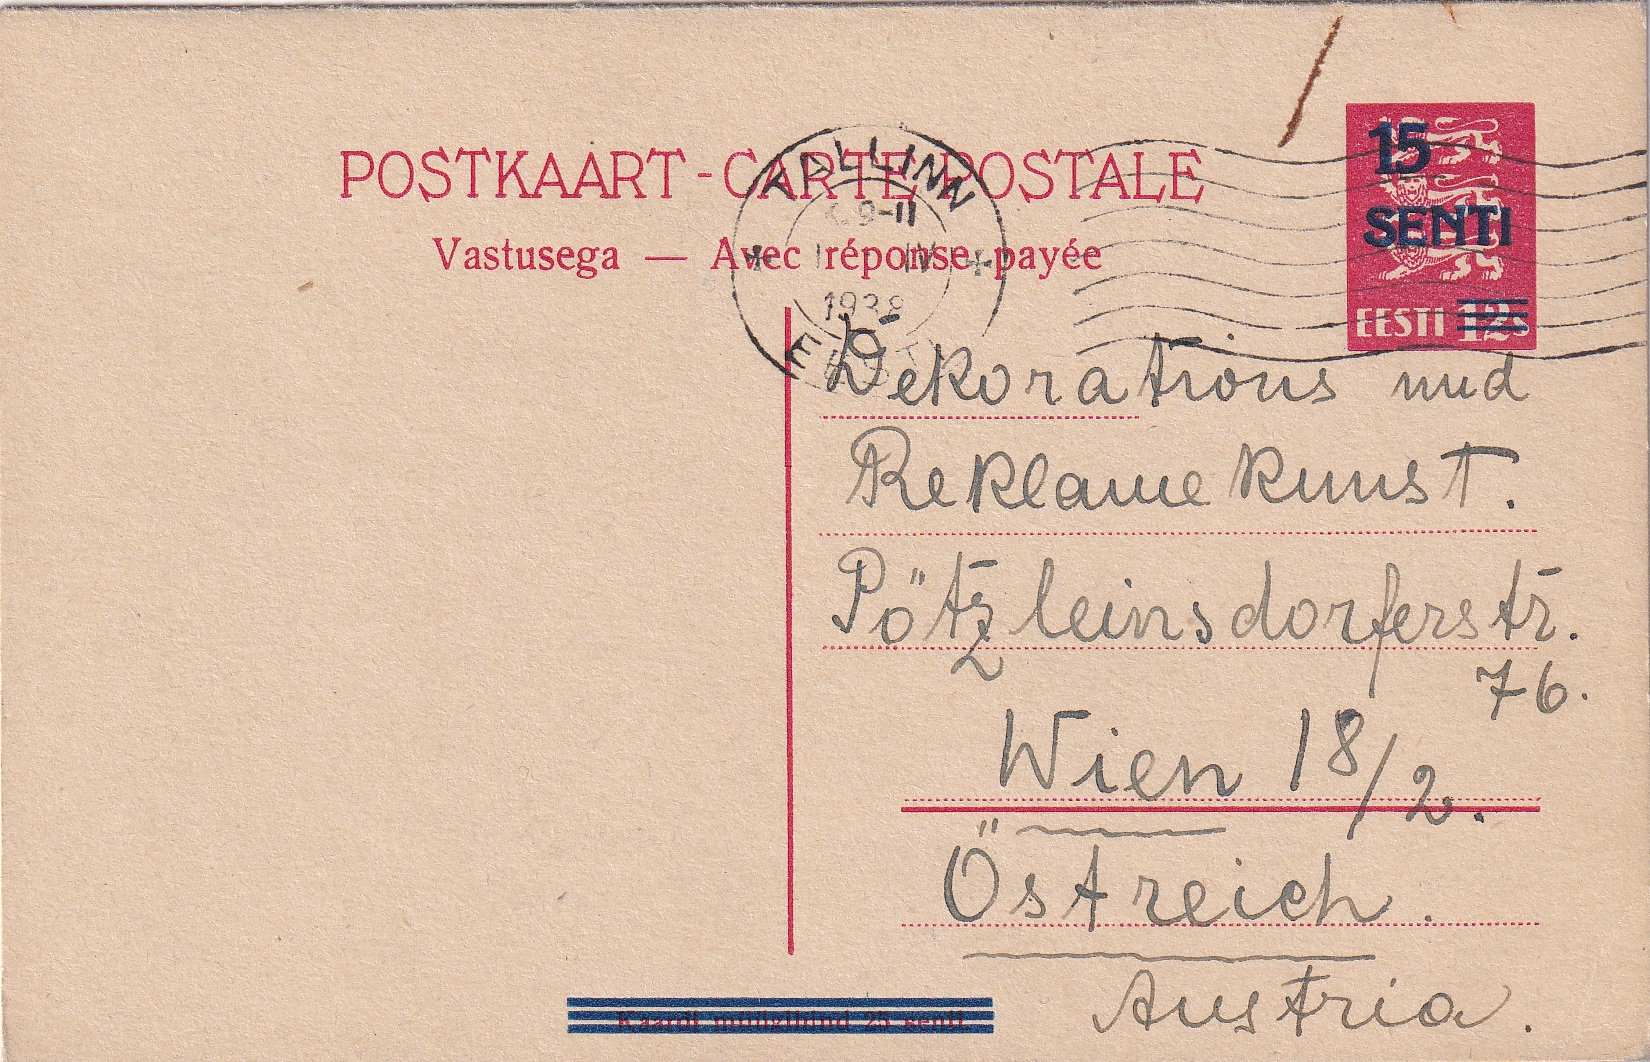 POSTKAART - CARTE POSTALE
Vastusega — Avec réponse payée
TALLINN
9-11
IV
1938
EESTI
15
SENTI
EESTI 12s
Dekorations und
Reklamekunst.
Pötzleinsdorferstr.
76.
Wien 18/2.
Östreich.
Austria.
Kaardi müügihind 25 senti